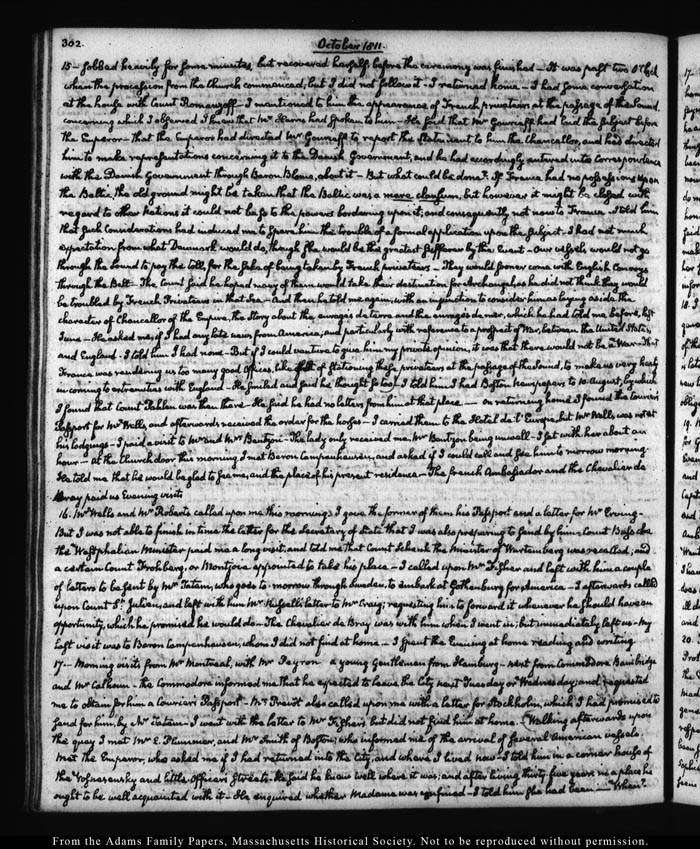 302.
October 1811.
15 - sobbed heavily for some minutes, but recovered herself before the ceremony was finished - It was past two O'Clock
when the procession from the Church commenced, but I did not follow it - I returned home - I had some conversation
at the house with Count Romanzoff - I mentioned to him the appearance of French privateers at the passage of the Sound,
concerning which I observed I knew that Mr Harris had spoken to him - He said that Mr Gourieff had laid the subject before
the Emperor - that the Emperor had directed Mr Gourieff to report the statement to him the Chancellor, and had directed
him to make representations concerning it to the Danish Government, and he had accordingly entered into Correspondence
with the Danish Government through Baron Blome, about it - But what could be done? If France had no possessions upon
the Baltic, the old ground might be taken that the Baltic was a mere clausum, but however it might be closed with
regard to other Nations it could not be so to the powers bordering upon it; and consequently not now to France - I told him
that such Considerations had induced me to spare him the trouble of a formal application upon the subject - I had not much
expectation from what Denmark would do, though she would be the greatest sufferer by this Event - Our vessels would not go
through the Sound to pay the toll, for the sake of being taken by French privateers - They would sooner come with English Convoys
through the Belt - The Count said he hoped many of them would take their destination for Archangel as he did not think they would
be troubled by French Privateers in that Sea - And then he told me again, with an injunction to consider him as laying aside the
character of Chancellor of the Empire, the Story about the enragés de terre and the enragés de mer, which he had told me before, last
June - He asked me, if I had any late news from America; and particularly with reference to a prospect of War, between the United States,
and England - I told him I had none - But if I could venture to give him my private opinion, it was that there would not be a War - That
France was rendering us too many good Offices, like that of stationing these privateers at the passage of the Sound, to make us very hasty
in coming to extremities with England - He smiled and said he thought so too - I told him I had Boston Newspapers to 10 August, by which
I found that Count Pahlen was then there - He said he had no letters from him at that place - on returning home I found the Courier's
Passport for Mr Wells, and afterwards received the order for the horses - I carried them to the Hotel de l'Europe but Mr Wells was not at
his lodgings - I paid a visit to Mr and Mrs Bentzon - The lady only received me, Mr Bentzon being unwell - I sat with her about an
hour - At the Church door this morning I met Baron Campenhausen, and asked if I could call and see him to-morrow morning.
He told me that he would be glad to see me, and the place of his present residence - The French Ambassador and the Chevalier de
Bray paid us Evening visits
16. Mr Wells and Mr Roberts called upon me this morning. I gave the former of them his Passport and a letter for Mr Erving -
But I was not able to finish in time the letter for the Secretary of State that I was also preparing to send by him. Count Bussche
the Westphalian Minister paid me a long visit, and told me that Count Schenk the Minister of Wurtemberg was recalled, and
a certain Count Frohberg, or Montjoie appointed to take his place - I called upon Mr Fisher and left with him a couple
of letters to be sent by Mr Tatem, who goes to-morrow through Sweden to embark at Gothenburg for America - I afterwards called
upon Count St Julien, and left with him Mr Russell's letter to Mr Craig; requesting him to forward it whenever he should have an
opportunity, which he promised he would do - The Chevalier de Bray was with him when I went in; but immediately left us - My
last visit was to Baron Campenhausen, whom I did not find at home - I spent the Evening at home reading and writing
17 - Morning visits from Mr Montreal, with Mr Peyron a young Gentleman from Hamburg - next from Commodore Bainbridge
and Mr Calhoun - the Commodore informed me that he expected to leave the City next Tuesday or Wednesday and requested
me to obtain for him a Courier's Passport - Mr Prevost also called upon me with a letter for Stockholm, which I had promised to
send for him, by Mr Tatem I went with the letter to Mr Fisher's but did not find him at home. Walking afterwards upon
the quay I met Mr E. Plummer, and Mr Smith of Boston, who informed me of the arrival of several American vessels.
Met the Emperor, who asked me if I had returned into the City, and where I lived now - I told him in a corner house of
the Vosnesensky and little Officer's streets - He said he knew well where it was; and after living thirty five years in a place he
ought to be well acquainted with it - He enquired whether Madame was confined - I told him she had been - "When?
From the Adams Family Papers, Massachusetts Historical Society. Not to be reproduced without permission.